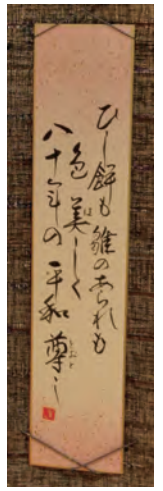 ひし餅も雛のあられも
色美しく
八十年の平和尊し